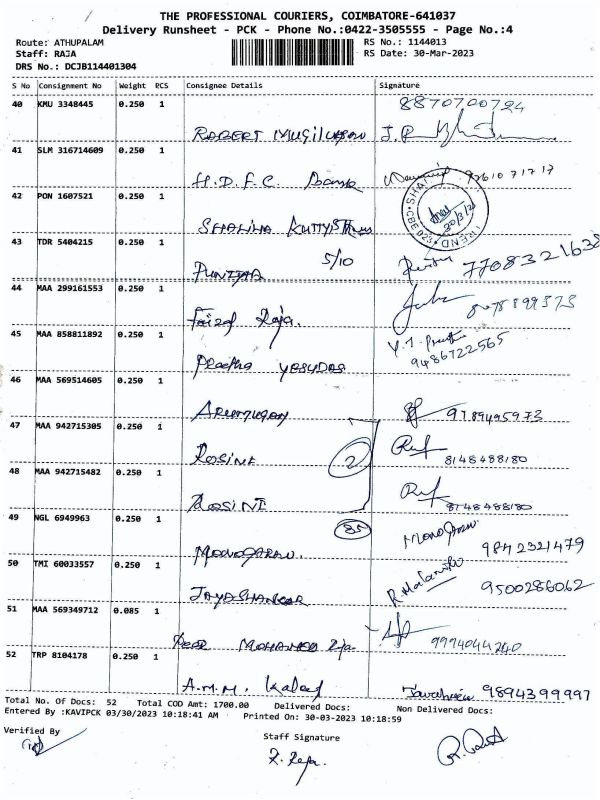 THE PROFESSIONAL COURIERS, COIMBATORE-641037
Delivery Runsheet - PCK - Phone No.:0422-3505555 - Page No.:4
Route: ATHUPALAM
Staff: RAJA
DRS No.: DCJB114401304
RS No.: 1144013
RS Date: 30-Mar-2023
S No Consignment No Weight PCS Consignee Details Signature
40 KMU 3348445 0.250 1 8870700724
ROBERT J.R
41 SLM 316714609 0.250 1
H.D.F.C. Bank 717 17
42 PON 1607521 0.250 1
SHALIHA
CBE 023 TREND
43 TDR 5404215 0.250 1 5/10
PUNITHA 7708321638
44 MAA 299161553 0.250 1
Faizal Raja.
45 MAA 858811892 0.250 1 Y.J. Preetha
9486722565
Preetha YESUDAS
46 MAA 569514605 0.250 1
ARUMUGAM 9789495973
47 MAA 942715305 0.250 1
ROSINE 2 8148488180
48 MAA 942715482 0.250 1
ROSINE 8148488180
49 NGL 6949963 0.250 1 85
MANOGARAN 9842321479
50 TMI 60033557 0.250 1
JAYASHANKAR 9500286062
51 MAA 569349712 0.085 1
PEER MOHAMED Raja 9994044240
52 TRP 8104178 0.250 1
A.M.M. 9894399997
Total No. Of Docs: 52 Total COD Amt: 1700.00 Delivered Docs: Non Delivered Docs:
Entered By :KAVIPCK 03/30/2023 10:18:41 AM Printed On: 30-03-2023 10:18:59
Verified By
Staff Signature
R. Raja.